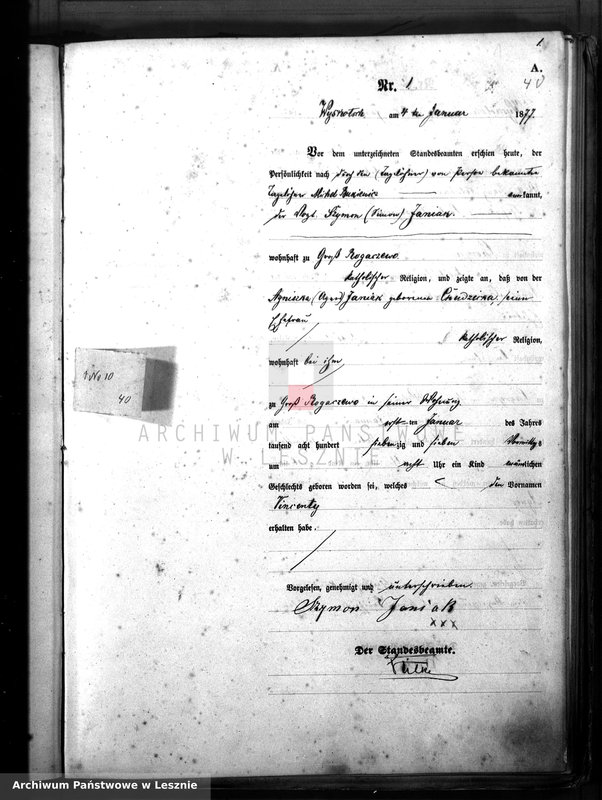 1.
A.
Nr. 1
40
am 4ten Januar 1877.
Vor dem unterzeichneten Standesbeamten erschien heute, der
Persönlichkeit nach durch den (Tagelöhner) von Person bekannten
Tagelöhner kannt,
der Vogt Szymon (Simon) Janiak
wohnhaft zu Groß Rogaczewo
katholischer Religion, und zeigte an, daß von der
Agnieszka (Agnes) Janiak geborenen seiner
Ehefrau
katholischer Religion,
wohnhaft bei ihm
zu Groß Rogaczewo in seiner Wohnung
am ersten Januar des Jahres
tausend acht hundert siebenzig und sieben Vormittags
um acht Uhr ein Kind männlichen
Geschlechts geboren worden sei, welches den Vornamen
Vincenty
erhalten habe.
Vorgelesen, genehmigt und unterschrieben
Szymon Janiak
xxx
Der Standesbeamte.
No 10
40
ARCHIWUM PAŃSTWOWE
W LESZNIE
Archiwum Państwowe w Lesznie